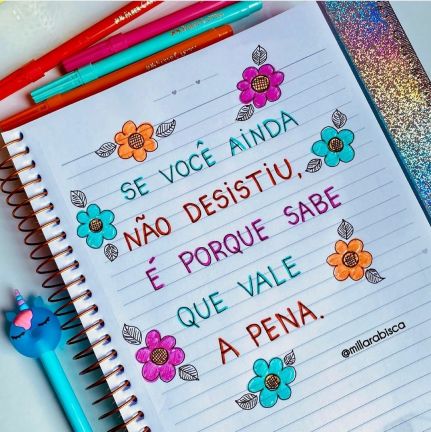 SE VOCÊ AINDA
NÃO DESISTIU,
É PORQUE SABE
QUE VALE
A PENA.
@millarabisca